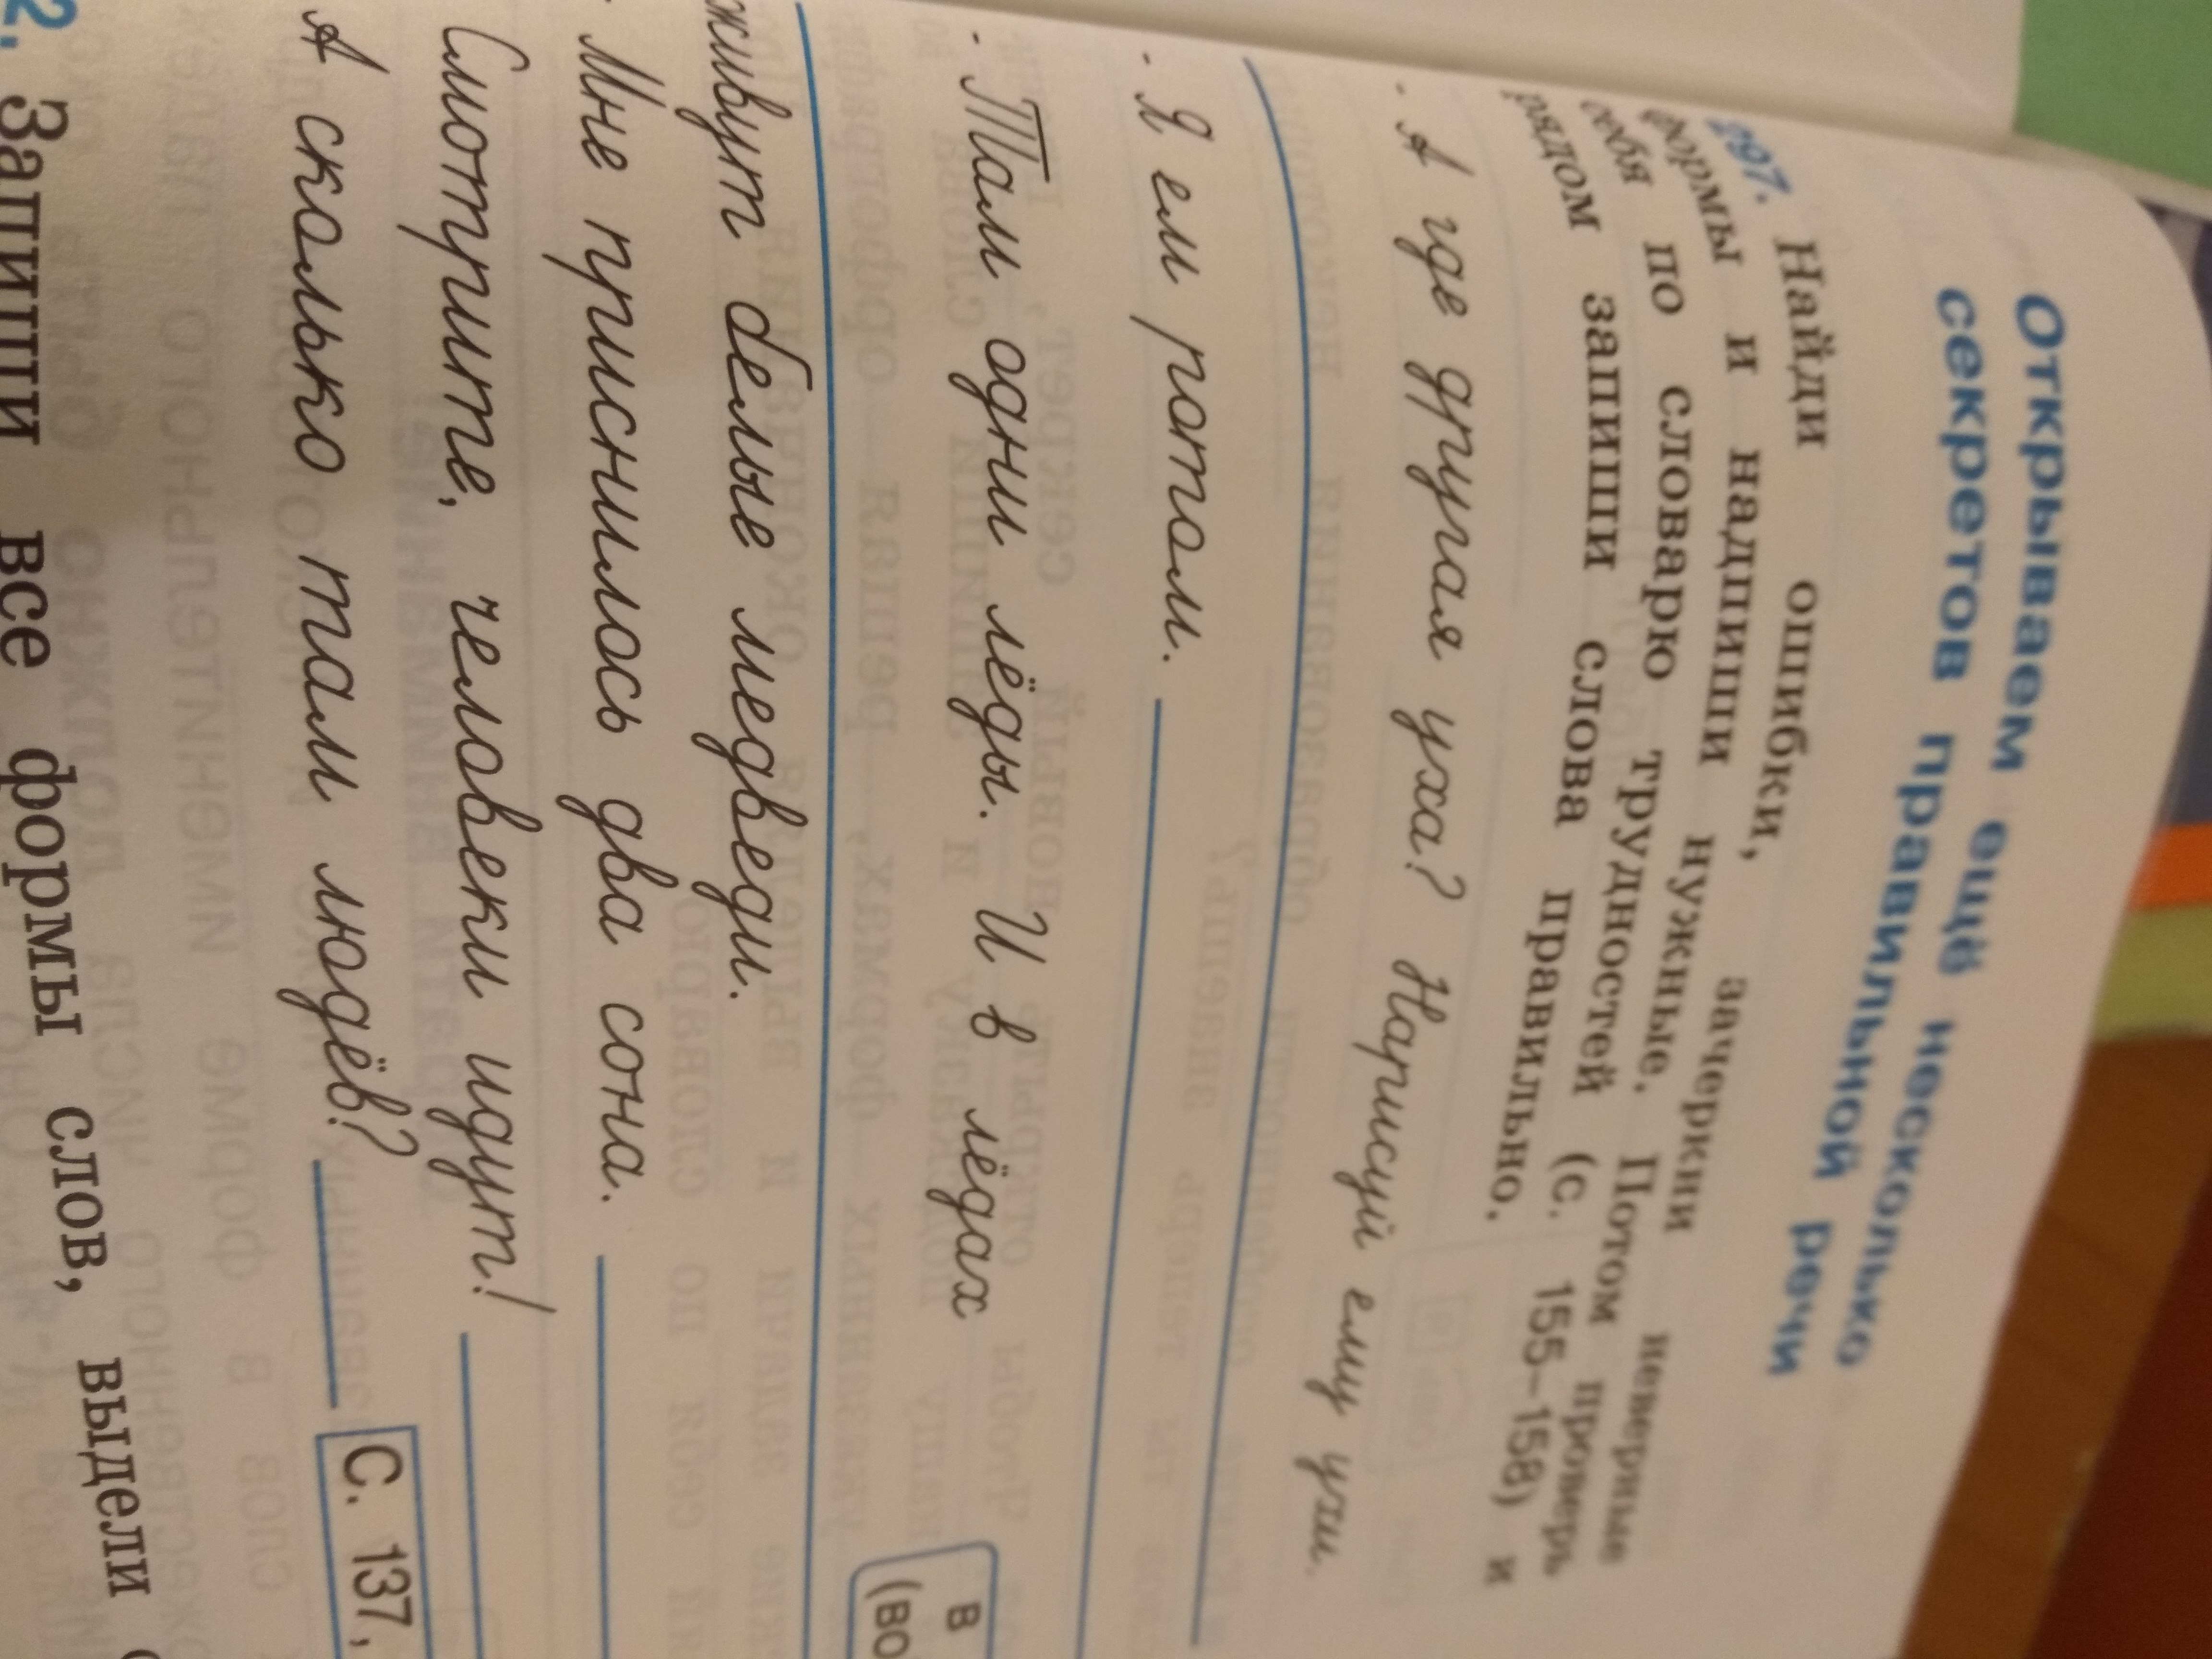 Открываем ещё несколько
секретов правильной речи
297. Найди ошибки, зачеркни неверные
формы и надпиши нужные. Потом проверь
себя по словарю трудностей (с. 155–158) и
рядом запиши слова правильно.
. А где другая уха? Нарисуй ему ухи.
. Я ем ротом.
. Там одни лёды. И в лёдах
живут белые медведи.
в
(во
. Мне приснилось два сона.
Смотрите, человеки идут!
А сколько там людёв?
С. 137,
2. Запиши все формы слов, выдели